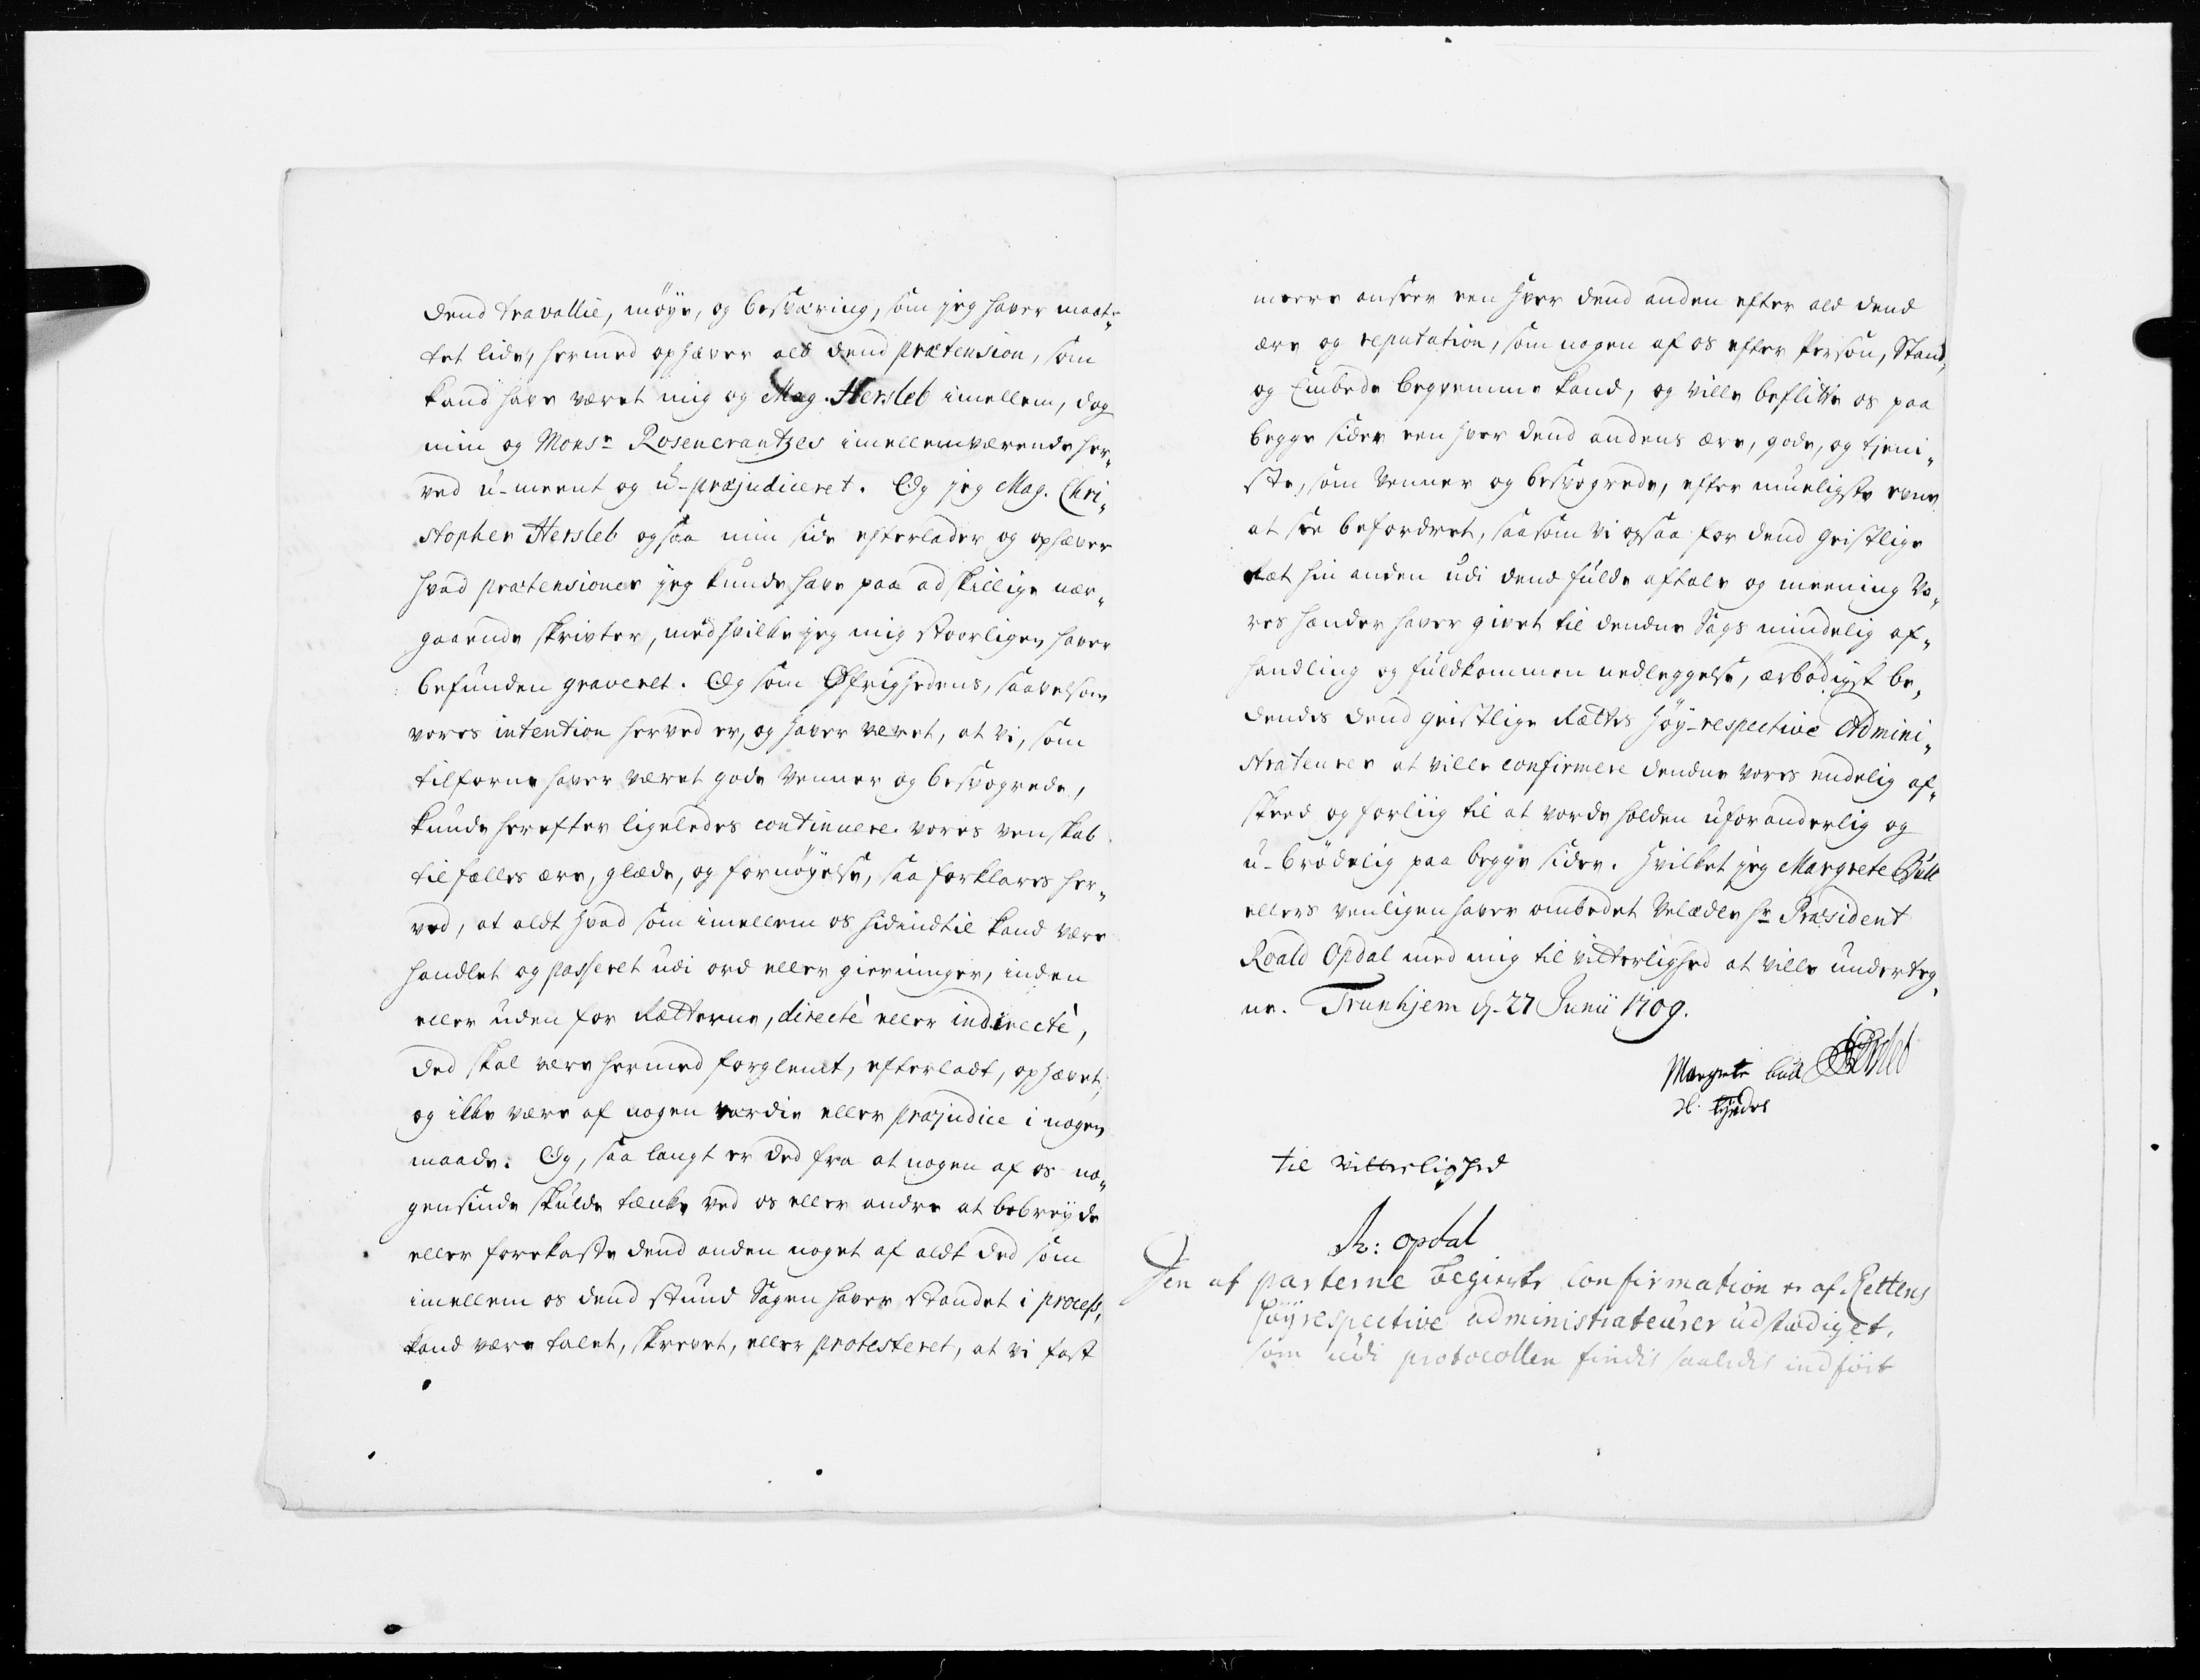 dend travallie, møye, og besværing, som jeg haver maat„
tet lide, hermed ophæver all dend prætension, som
kand have været mig og Mag. Hersleb imellem, dog
min og Monsr Rosencrantzes imellemværende her„
ved u-meent og u-præjudiceret. Og jeg Mag. Chri„
stopher Hersleb ogsaa min side efterlader og ophæver
hvad prætensioner jeg kunde have paa adskillige nær„
gaaende skrivter, med hvilke jeg mig stoorligen haver
befunden graveret. Og som Øfrighedens, saavelsom
vores intention herved er, og haver været, at vi, som
tilforne haver været gode Venner og besvogrede,
kunde herefter ligeledes continuere vores venskab
til fælles ære, glæde, og fornøyelse, saa forklares her„
ved, at aldt hvad som imellem os hidindtil kand være
handlet og passeret udi ord eller gierninger, inden
eller uden for Rætterne, directè eller indirectè,
ded skal være hermed forglemt, efterladt, ophævet,
og ikke være af nogen værdie eller præjudice i nogen
maade. Og, saa langt er ded fra at nogen af os no„
gensinde skulde tænke ved os eller andre at bebreyde
eller forekaste dend anden noget af aldt ded som
imellem os dend stund Sagen haver standet i process,
kand være talet, skrevet, eller protesteret, at vi fast
meere anseer een hver dend anden efter ald dend
ære og reputation, som nogen af os efter Person, Stand,
og Embede beqvemme kand, og ville beflitte os paa
begge sider een hver dend andens ære, gode, og tjeni„
ste, som Venner og besvogrede, efter mueligste evne
at see befordret, saasom vi ogsaa for dend geistlige
Ræt hin anden udi dend fulde aftale og meening Vo„
res hænder haver givet til dendne Sags mindelig af„
handling og fuldkommen nedleggelse, ærbødigst be„
dendes dend geistlige Rættes høy-respective Admini„
strateurer at ville confirmere dendne vores endelig af„
skeed og forliig til at vorde holden uforanderlig og
u-brødelig paa begge sider. Hvilket jeg Margrete Bull
ellers venligen haver ombedet Velædle Hr Præsident
Roald Opdal med mig til vitterlighed at ville underteg„
ne. Trunhjem d. 27 Junii 1709.
Margrete Bull
til vitterlighed
R: Opdal
Den af parterne begierte confirmation er af Rettens
høyrespective administrateurer udstædiget,
som udi protocollen findis saaledes indført